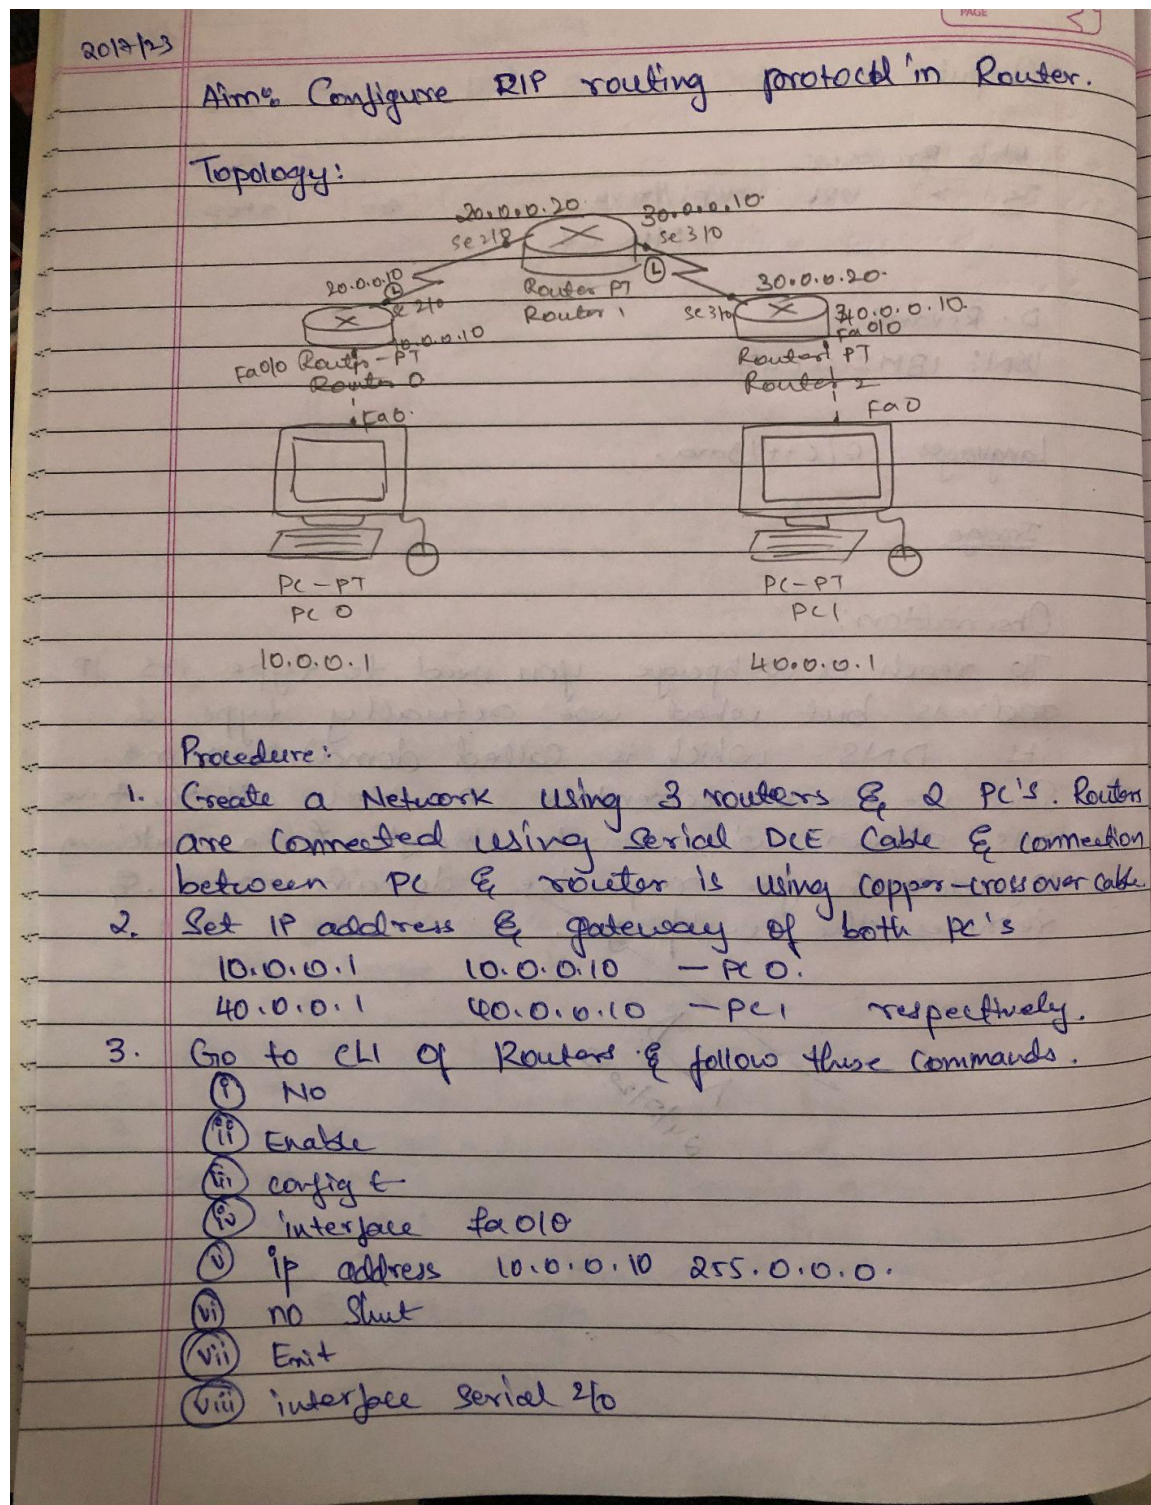 PAGE
20/7/23
Aim: Configure RIP routing protocol in Router.
Topology:
20.0.0.20 30.0.0.10
Se 2/0 Se 3/0
20.0.0.10 Router PT 30.0.0.20
Se 2/0 Router 1 Se 3/0 40.0.0.10
10.0.0.10 Fa 0/0
Fa0/0 Router-PT Router PT
Router 0 Router 2
Fa0 Fa0
PC-PT PC-PT
PC 0 PC1
10.0.0.1 40.0.0.1
Procedure:
1. Create a Network using 3 routers & 2 PC's. Routers
are connected using serial DCE Cable & connection
between PC & router is using copper-crossover cable.
2. Set IP address & gateway of both PC's
10.0.0.1 10.0.0.10 - PC 0.
40.0.0.1 40.0.0.10 - PC1 respectively.
3. Go to CLI of Routers & follow these commands.
i No
ii Enable
iii config t
iv interface fa0/0
v ip address 10.0.0.10 255.0.0.0.
vi no Shut
vii Exit
viii interface Serial 2/0